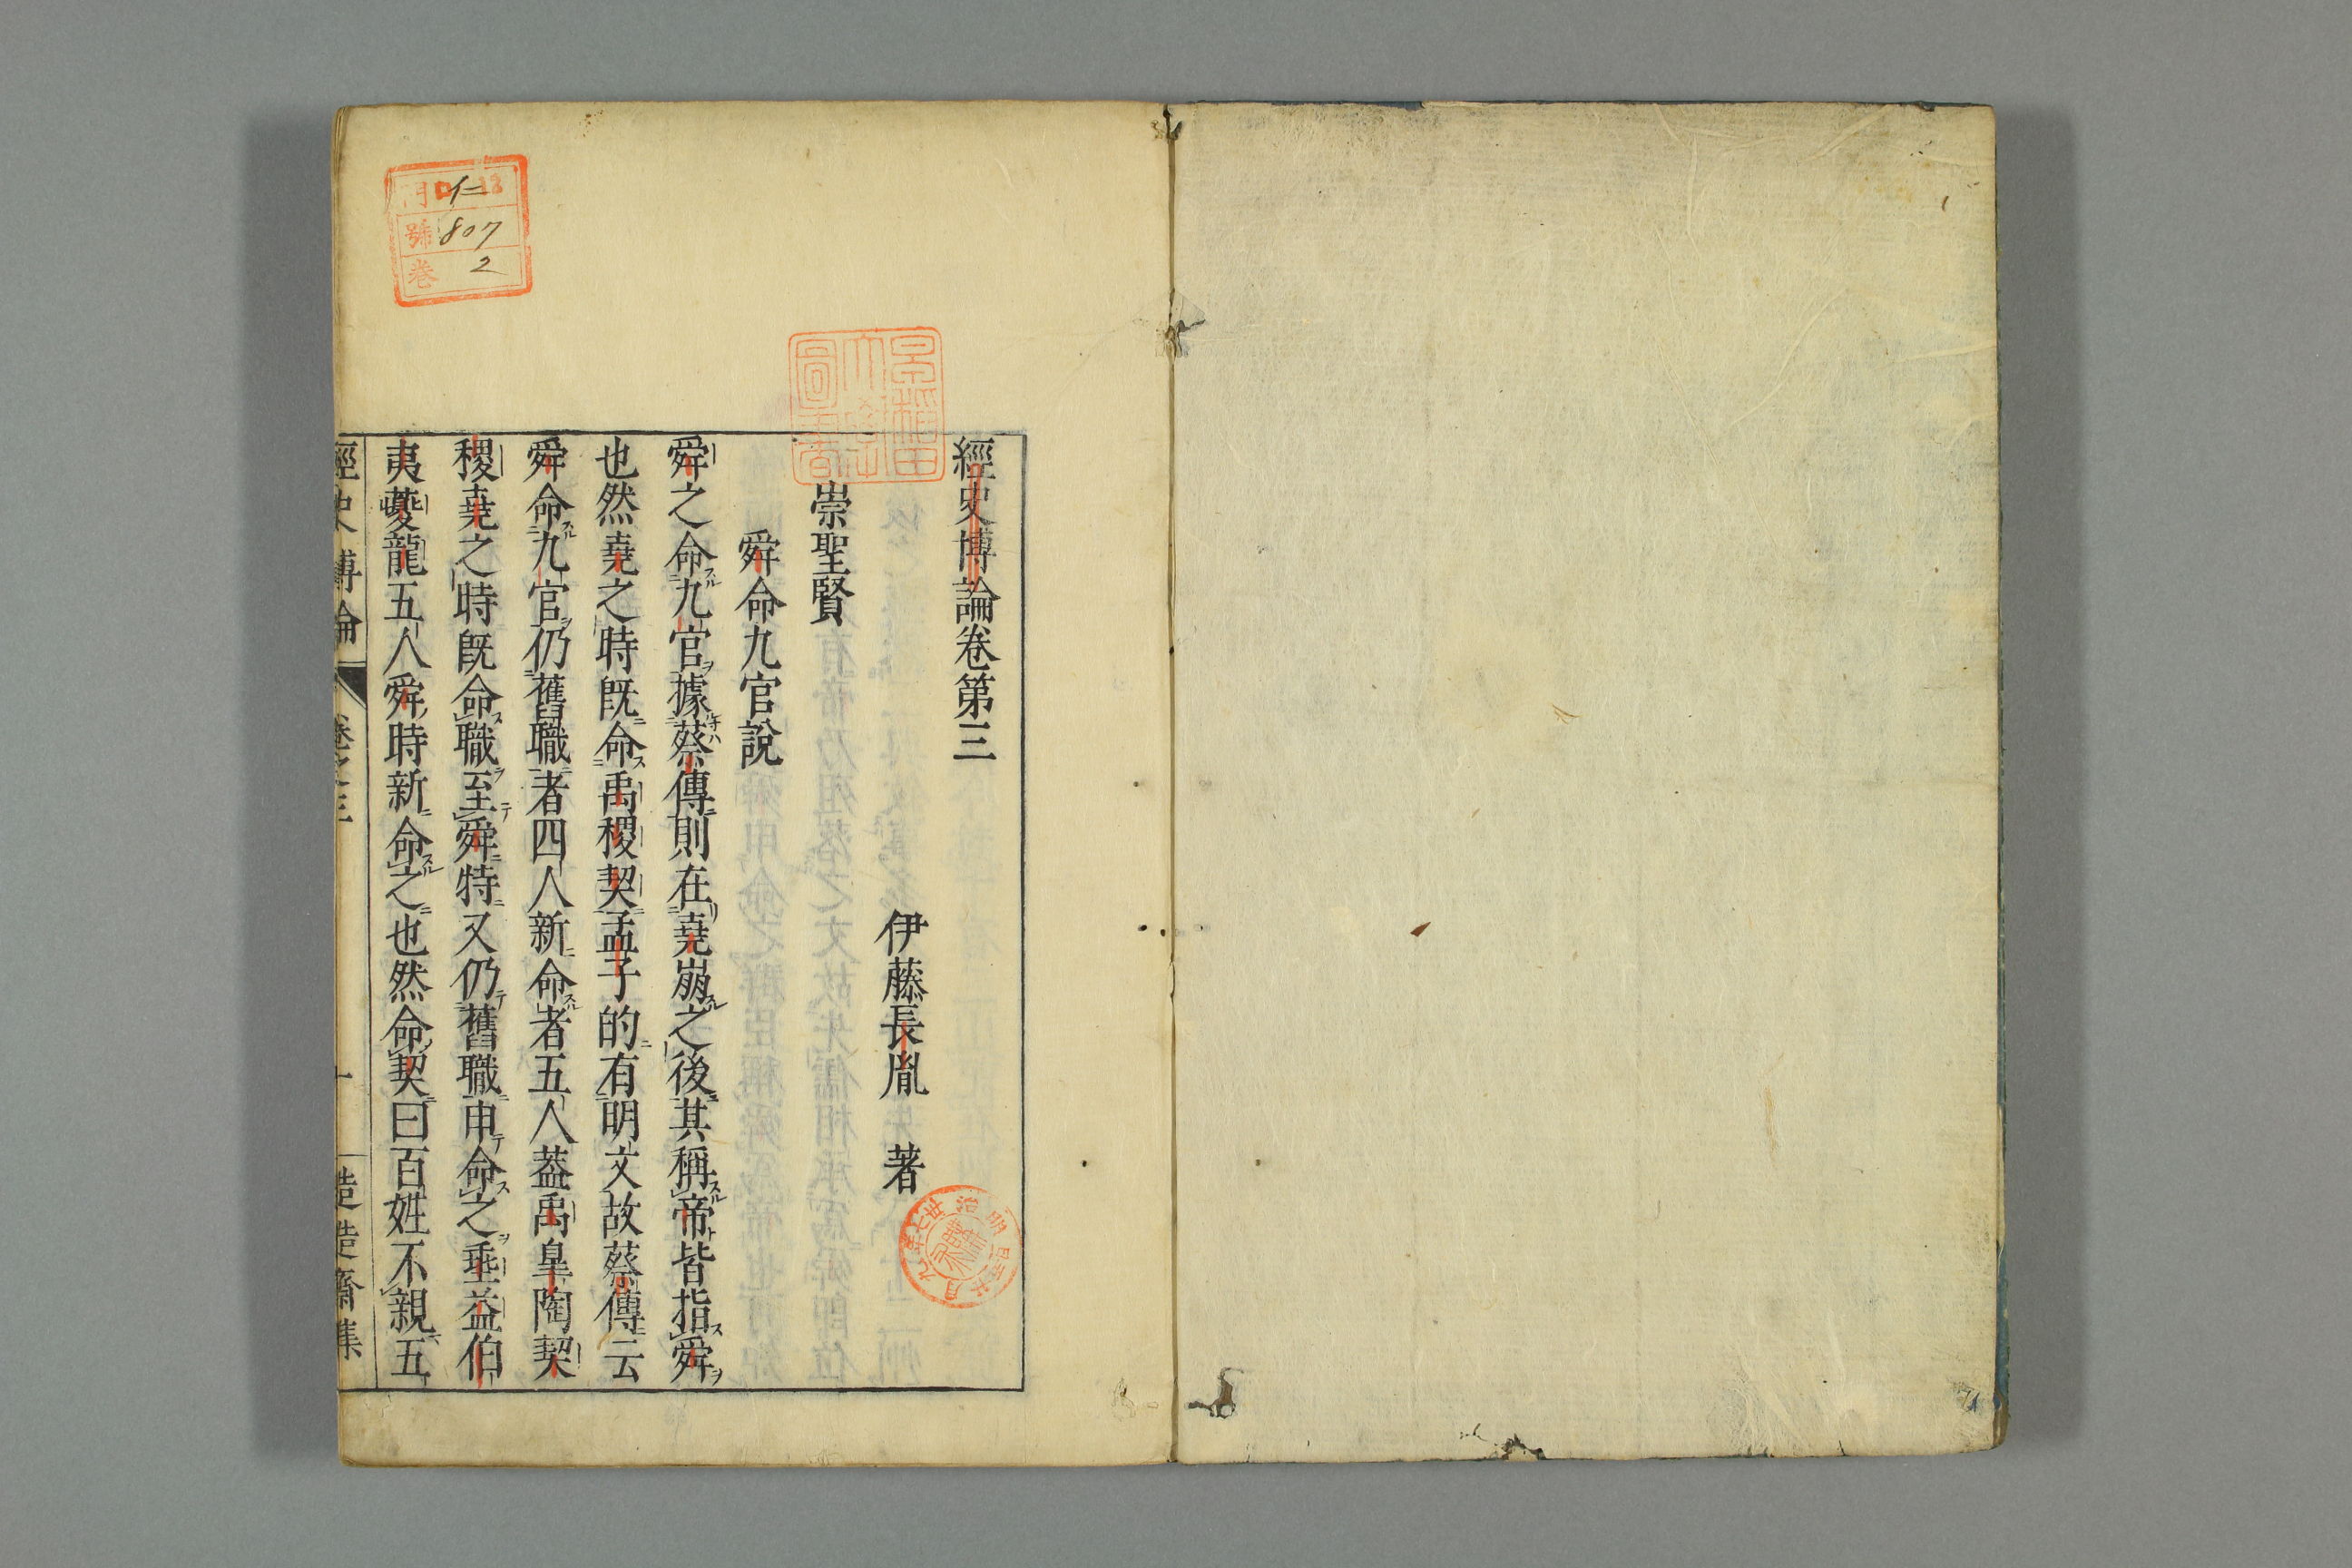 經史博論卷第三
伊藤長胤 著
崇聖賢
舜命九官說
舜之命九官據蔡傳則在堯崩之後其稱帝皆指舜
也然堯之時既命禹稷契孟子的有明文故蔡傳云
舜命九官仍舊職者四人新命者五人蓋禹皐陶契
稷堯之時既命職至舜特又仍舊職申命之垂益伯
夷夔龍五人舜時新命之也然命契曰百姓不親五
經史博論 卷之三 一 慥慥齋集
門 イ 13
號 807
卷 2
早稲田大學圖書
明治廿七年九月
購求